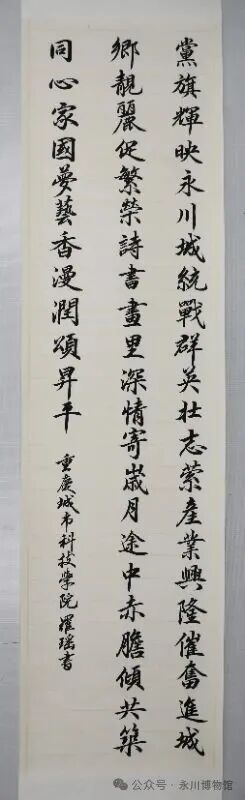 黨旗輝映永川城統戰群英壯志縈產業興隆催奮進城
鄉靚麗促繁榮詩書畫里深情寄歲月途中赤膽傾共築
同心家國夢藝香漫潤頌昇平
重慶城市科技學院 羅瑶書
公众号·永川博物馆